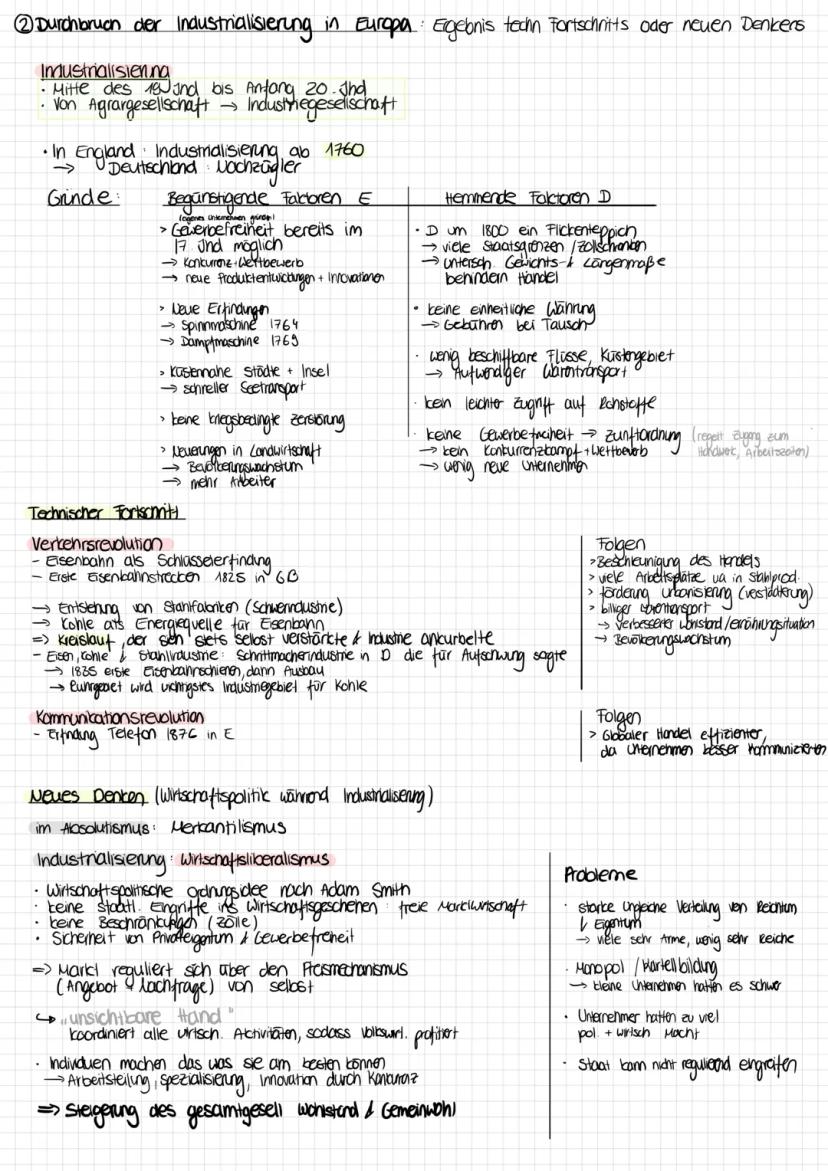 ② Durchbruch der Industrialisierung in Europa: Ergebnis techn Fortschritts oder neuen Denkens
Industrialisierung
· Mitte des 18. Jhd bis Anfang 20. Jhd
· Von Agrargesellschaft → Industriegesellschaft
· In England: Industrialisierung ab 1760
→ Deutschland: Nachzügler
Gründe:
Begünstigende Faktoren E
(eigenes Unternehmen gründ.)
> Gewerbefreiheit bereits im
17. Jhd möglich
→ Konkurrenz + Wettbewerb
→ neue Produktentwicklungen + Innovationen
> Neue Erfindungen
→ Spinnmaschine 1764
→ Dampfmaschine 1769
> Küstennahe Städte + Insel
→ schneller Seetransport
> keine kriegsbedingte Zerstörung
> Neuerungen in Landwirtschaft
→ Bevölkerungswachstum
→ mehr Arbeiter
Hemmende Faktoren D
· D um 1800 ein Flickenteppich
→ viele Staatsgrenzen / Zollschranken
→ untersch. Gewichts- & Längenmaße
behindern Handel
· keine einheitliche Währung
→ Gebühren bei Tausch
· wenig beschiffbare Flüsse, Küstengebiet
→ Aufwendiger Warentransport
· kein leichter Zugriff auf Rohstoffe
· keine Gewerbefreiheit → Zunftordnung (regelt Zugang zum
Handwerk, Arbeitszeiten)
→ kein Konkurrenzkampf + Wettbewerb
→ wenig neue Unternehmen
Technischer Fortschritt
Verkehrsrevolution
- Eisenbahn als Schlüsselerfindung
- Erste Eisenbahnstrecken 1825 in GB
→ Entstehung von Stahlfabriken (Schwerindustrie)
→ Kohle als Energiequelle für Eisenbahn
=> Kreislauf, der sich stets selbst verstärkte & Industrie ankurbelte
- Eisen, Kohle & Stahlindustrie: Schrittmacherindustrie in D die für Aufschwung sogte
→ 1835 erste Eisenbahnschienen, dann Ausbau
→ Ruhrgebiet wird wichtigstes Industriegebiet für Kohle
Folgen
> Beschleunigung des Handels
> viele Arbeitsplätze ua in Stahlprod.
> förderung urbanisierung (verstädterung)
> billiger warentransport
→ verbesserter wohlstand / ernährungsituation
→ Bevölkerungswachstum
Kommunikationsrevolution
- Erfindung Telefon 1876 in E
Folgen
> Globaler Handel effizienter,
da Unternehmen besser kommunizierten
Neues Denken (Wirtschaftspolitik während Industrialiserung)
im Absolutismus: Merkantilismus
Industrialisierung: Wirtschaftsliberalismus
· Wirtschaftspolitische Ordnungsidee nach Adam Smith
· keine staatl. Eingriffe ins Wirtschaftsgeschehen: freie Marktwirtschaft
· keine Beschränkungen (Zölle)
· Sicherheit von Privateigentum & Gewerbefreiheit
=> Markt reguliert sich über den Preismechanismus
(Angebot & Nachfrage) von selbst
↳ „unsichtbare Hand"
koordiniert alle wirtsch. Aktivitäten, sodass Volkswirt. profitiert
· Individuen machen das was sie am besten können
→ Arbeitsteilung, spezialisierung, Innovation durch Konkuranz
=> Steigerung des gesamtgesell Wohlstand & Gemeinwohl
Probleme
· starke ungleiche Verteilung von Reichtum
& Eigentum
→ viele sehr Arme, wenig sehr Reiche
· Monopol / Kartellbildung
→ kleine Unternehmen hatten es schwer
· Unternehmer hatten zu viel
pol. + wirtsch Macht
· Staat kann nicht regulierend eingreifen